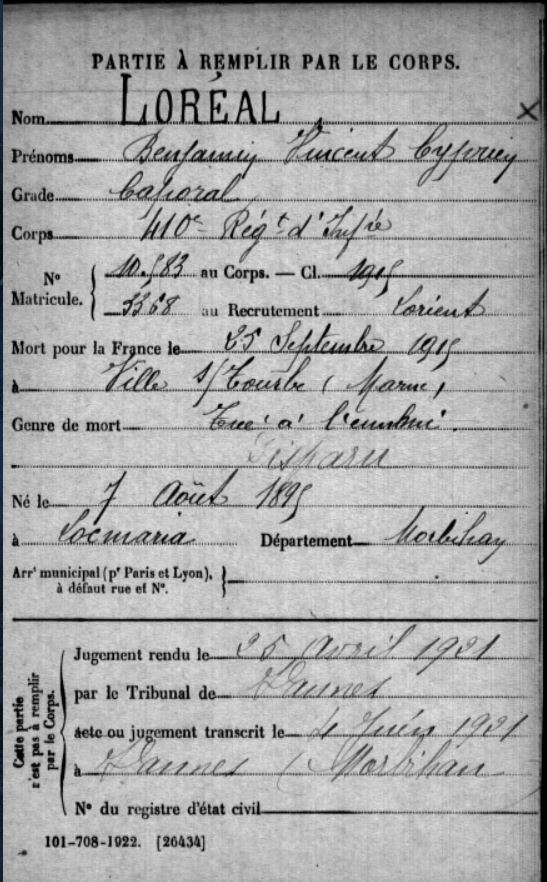 PARTIE À REMPLIR PAR LE CORPS.
Nom LORÉAL
Prénoms Benjamin Vincent Cyprien
Grade Caporal
Corps 410e Régt d'Infie
No Matricule. 10.583 au Corps. — Cl. 1915
3368 au Recrutement Lorient
Mort pour la France le 25 Septembre 1915
à Ville s/ Tourbe (Marne)
Genre de mort Tué à l'ennemi.
Disparu
Né le 7 Août 1895
à Locmaria Département Morbihan
Arrt municipal (pr Paris et Lyon), à défaut rue et No.
Cette partie n'est pas à remplir par le Corps.
Jugement rendu le 25 Avril 1921
par le Tribunal de Vannes
acte ou jugement transcrit le 4 Juin 1921
à Vannes (Morbihan
No du registre d'état civil
101-708-1922. [26434]